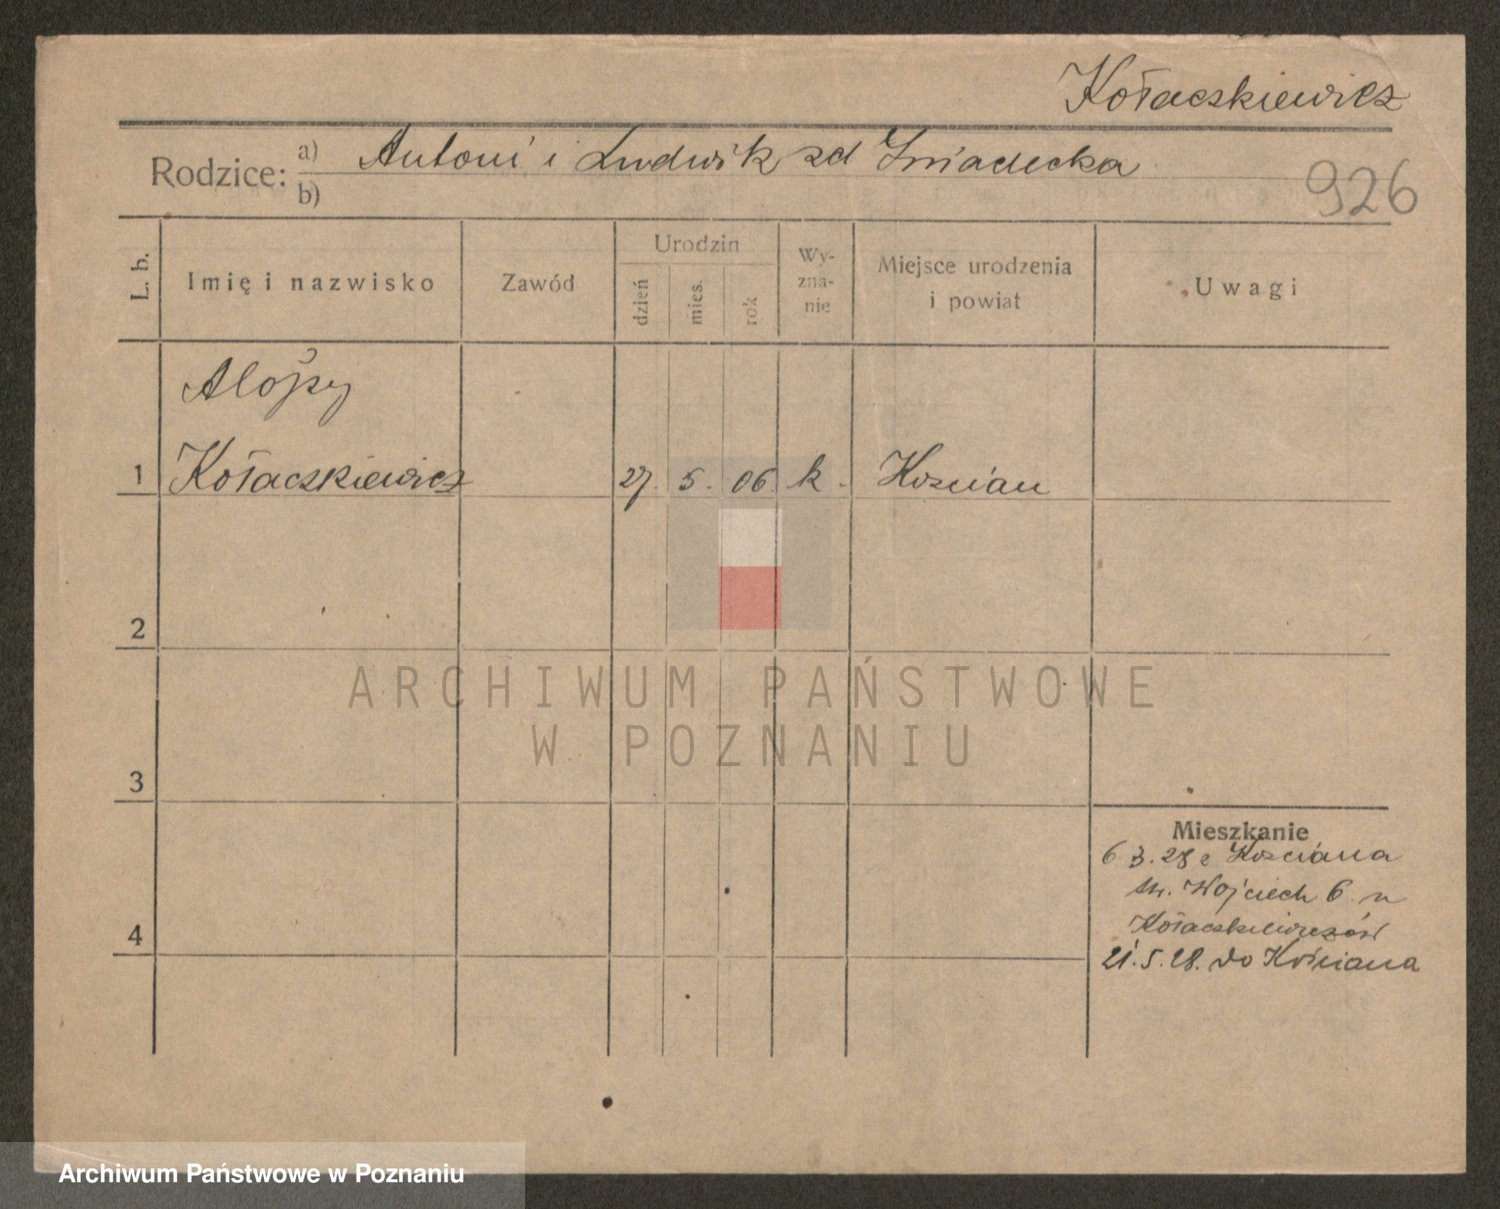 Kołaczkiewicz
Rodzice: a) Antoni i Ludwik zd Śniadecka
b)
926
L. b.
Imię i nazwisko
Zawód
Urodzin
dzień
mies.
rok
Wy-
zna-
nie
Miejsce urodzenia
i powiat
Uwagi
Alojzy
1 Kołaczkiewicz 27. 5. 06 k. Koscian
2
ARCHIWUM PAŃSTWOWE
W POZNANIU
3
Mieszkanie
6 3. 28 z Kosciana
św. Wojciech 6 u
4
Kołaczkiewiczów
21. 5. 28. do Kościana
Archiwum Państwowe w Poznaniu